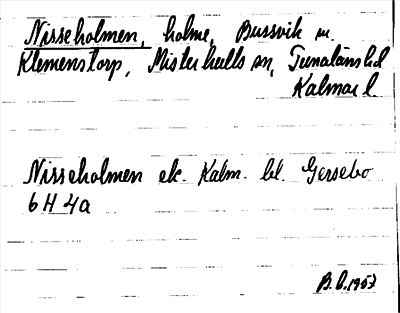 Nisseholmen, holme, Bussvik m.
Klemenstorp, Misterhults sn, Tunaläns hd
Kalmar l
Nisseholmen ek. Kalm. bl. Gersebo
6 H 4a
B.O. 1957